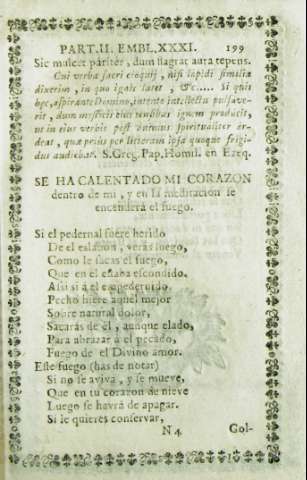 PART.II. EMBL.XXXI. 199
Sic mulcet páriter, dum flagrat aura tepens.
Cui verba sacri eloquij, nisi lapidi similia
dixerim, in quo ignis latet, &c..... Si quis
hęc, aspirante Domino, intento intellectu pulsave-
rit, dum mysticis eius sensibus ignem producit,
ut in eius verbis post animus spiritualiter ar-
deat, quæ priùs per litteram ipsa quoque frigi-
dus audiebat. S.Greg.Pap.Homil. en Ezeq.
SE HA CALENTADO MI CORAZON
dentro de mi, y en la meditacion se
encenderá el fuego.
Si el pedernal fuere herido
De el eslabon, verás luego,
Como le sacas el fuego,
Que en el estaba escondido.
Assi si á el empedernido
Pecho hiere aquel mejor
Sobre natural dolor,
Sacarás de él, aunque elado,
Para abrazar á el pecado,
Fuego de el Divino amor.
Este fuego (has de notar)
Si no se aviva, y se mueve,
Que en tu corazon de nieve
Luego se havrá de apagar.
Si le quieres conservar,
N 4 Gol-